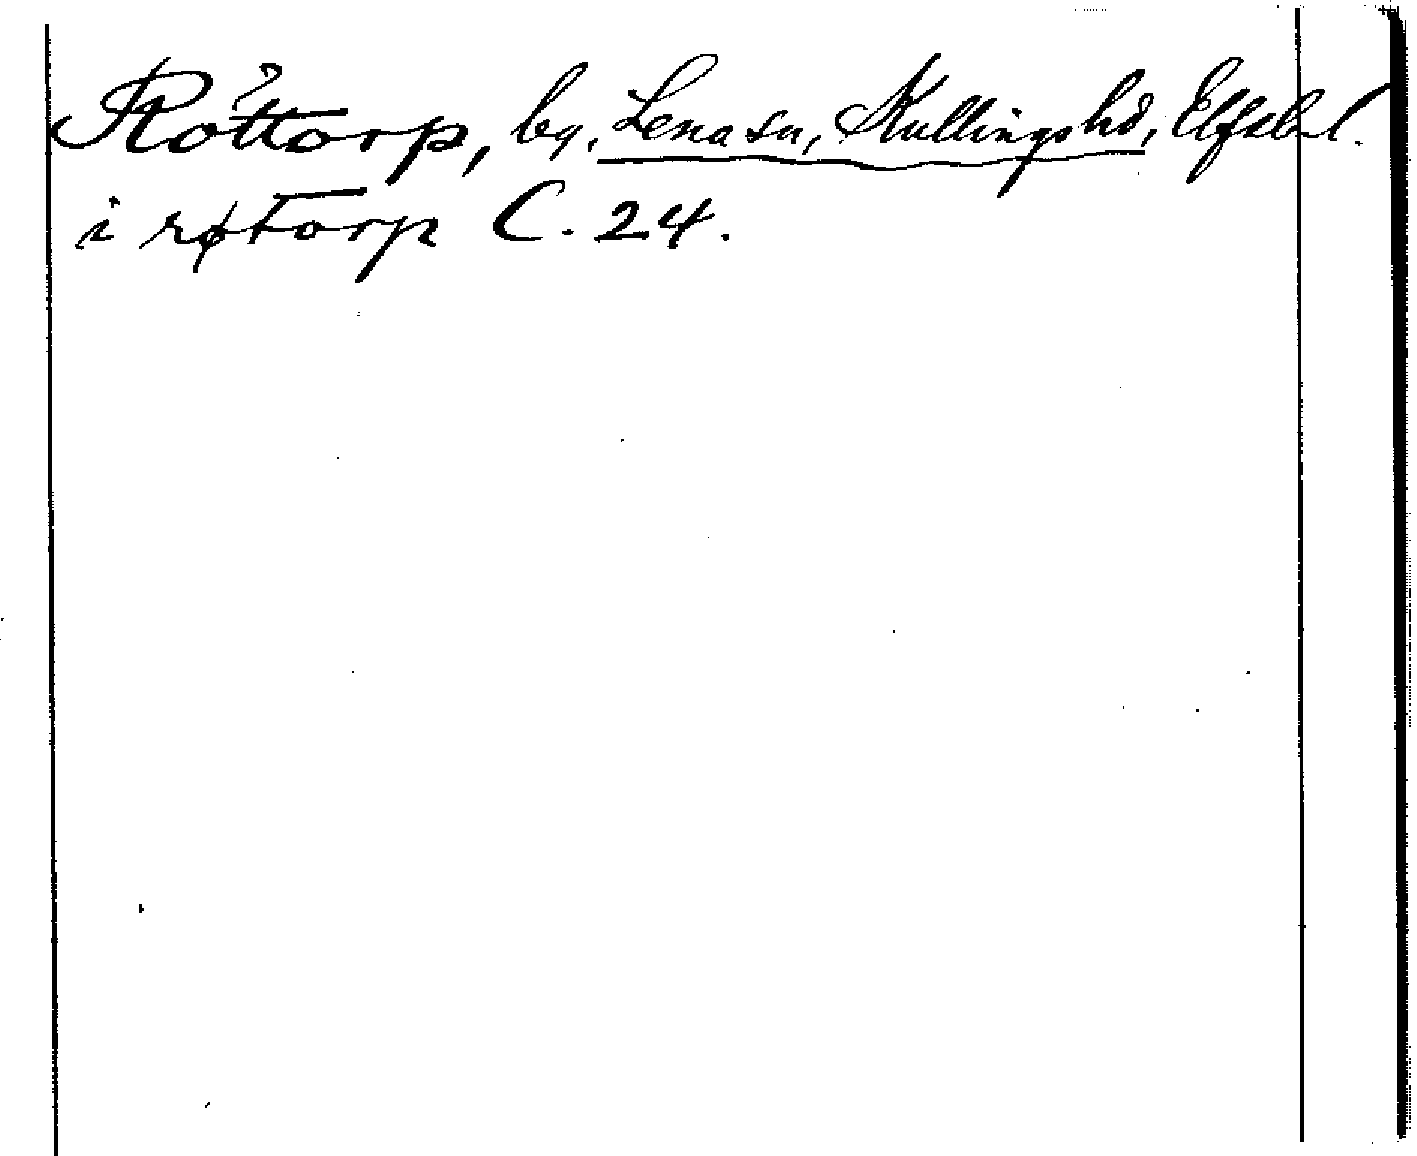 Röttorp, by, Lena sn, Kullings hd, Elfsb. l.
i røtorp C. 24.